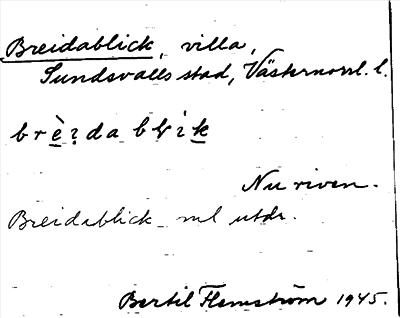 Breidablick, villa,
Sundsvalls stad, Västernorrl. l.
Nu riven.
Breidablick ml utdr.
Bertil Flemström 1945.